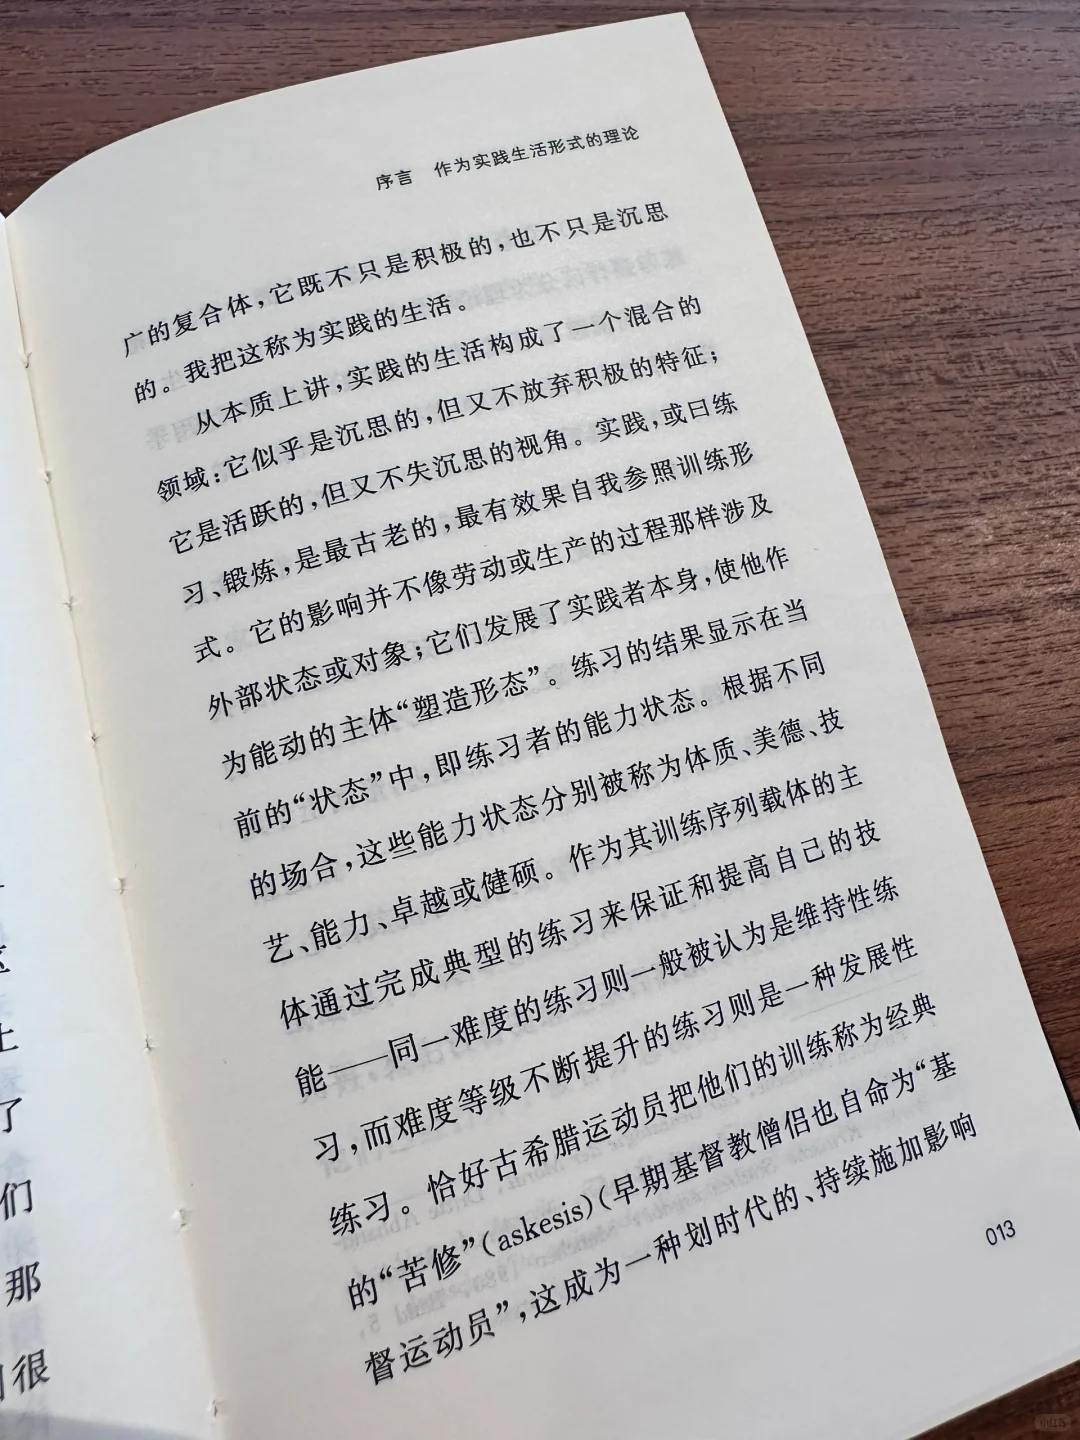 序言　作为实践生活形式的理论
广的复合体，它既不只是积极的，也不只是沉思
的。我把这称为实践的生活。
从本质上讲，实践的生活构成了一个混合的
领域：它似乎是沉思的，但又不放弃积极的特征；
它是活跃的，但又不失沉思的视角。实践，或曰练
习、锻炼，是最古老的，最有效果自我参照训练形
式。它的影响并不像劳动或生产的过程那样涉及
外部状态或对象；它们发展了实践者本身，使他作
为能动的主体“塑造形态”。练习的结果显示在当
前的“状态”中，即练习者的能力状态。根据不同
的场合，这些能力状态分别被称为体质、美德、技
艺、能力、卓越或健硕。作为其训练序列载体的主
体通过完成典型的练习来保证和提高自己的技
能——同一难度的练习则一般被认为是维持性练
习，而难度等级不断提升的练习则是一种发展性
练习。恰好古希腊运动员把他们的训练称为经典
的“苦修”（askesis）（早期基督教僧侣也自命为“基
督运动员”，这成为一种划时代的、持续施加影响
013
上
了
们
那
很
小红书